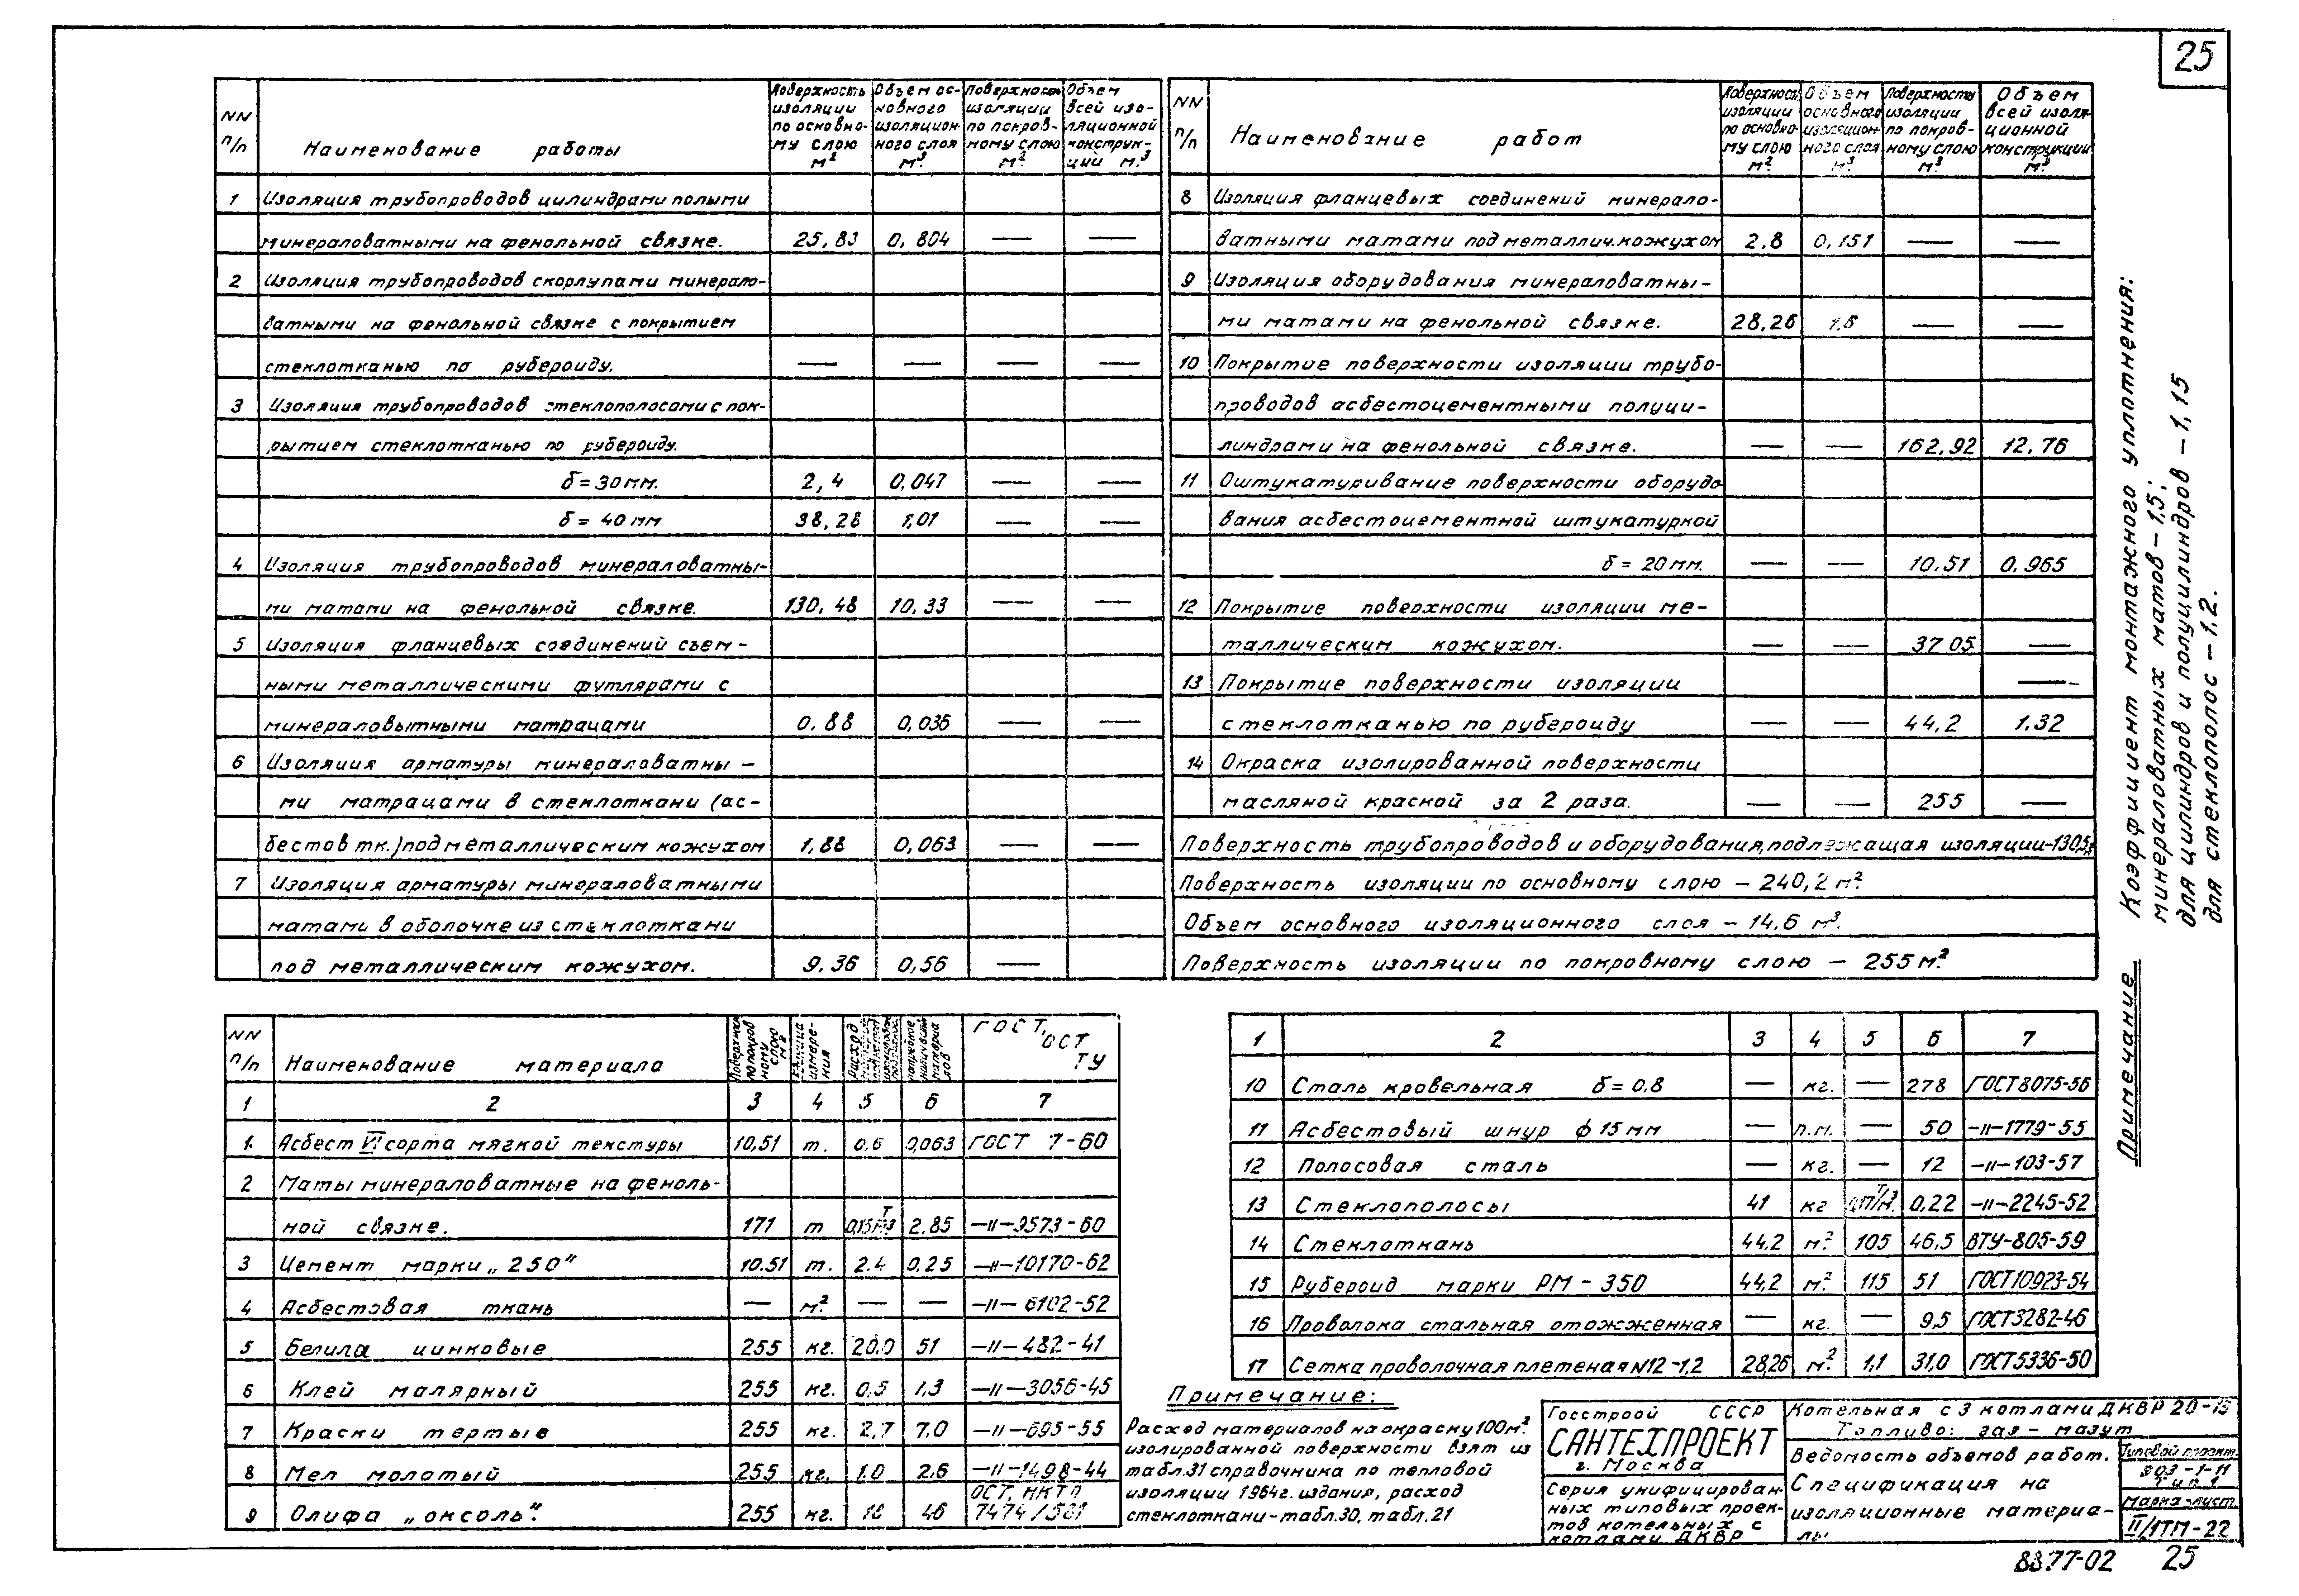 25
NN п/п | Наименование работы | Поверхность изоляции по основному слою м² | Объем основного изоляционного слоя м³. | Поверхность изоляции по покровному слою м². | Объем всей изоляционной конструкций м.³
1 | Изоляция трубопроводов цилиндрами полыми
минераловатными на фенольной связке. | 25,83 | 0,804 | — | —
2 | Изоляция трубопроводов скорлупами минерало-
ватными на фенольной связке с покрытием
стеклотканью по рубероиду. | — | — | — | —
3 | Изоляция трубопроводов стеклополосами с пок-
рытием стеклотканью по рубероиду.
δ = 30 мм. | 2,4 | 0,047 | — | —
δ = 40 мм | 38,28 | 1,01 | — | —
4 | Изоляция трубопроводов минераловатны-
ми матами на фенольной связке. | 130,48 | 10,33 | — | —
5 | Изоляция фланцевых соединений съем-
ными металлическими футлярами с
минераловытными матрацами | 0.88 | 0,036 | — | —
6 | Изоляция арматуры минераловатны-
ми матрацами в стеклоткани (ас-
бестов тк.) под металлическим кожухом | 1,88 | 0,063 | — | —
7 | Изоляция арматуры минераловатными
матами в оболочке из стеклоткани
под металлическим кожухом. | 9,36 | 0,56 | —
NN п/п | Наименование работ | Поверхность изоляции по основному слою м². | Объем основного изоляционного слоя м³. | Поверхность изоляции по покровному слою м³. | Объем всей изоляционной конструкции м³.
8 | Изоляция фланцевых соединений минерало-
ватными матами под металлич. кожухом | 2,8 | 0,151 | — | —
9 | Изоляция оборудования минераловатны-
ми матами на фенольной связке. | 28,26 | 1,6 | — | —
10 | Покрытие поверхности изоляции трубо-
проводов асбестоцементными полуци-
линдрами на фенольной связке. | — | — | 162,92 | 12,76
11 | Оштукатуривание поверхности оборудо
вания асбестоцементной штукатуркой
δ = 20 мм. | — | — | 10,51 | 0,965
12 | Покрытие поверхности изоляции ме-
таллическим кожухом. | — | — | 37 05. | —
13 | Покрытие поверхности изоляции | —
стеклотканью по рубероиду | — | — | 44,2 | 1,32
14 | Окраска изолированной поверхности
масляной краской за 2 раза. | — | — | 255 | —
Поверхность трубопроводов и оборудования, подлежащая изоляции-130,5
Поверхность изоляции по основному слою – 240,2 м².
Объем основного изоляционного слоя – 14,6 м³.
Поверхность изоляции по покровному слою – 255 м².
Примечание Коэффициент монтажного уплотнения:
минераловатных матов – 1,5;
для цилиндров и полуцилиндров – 1,15
для стеклополос – 1,2.
NN п/п | Наименование материала | Поверхность по покровному слою м² | Единица измерения | Расход | материалов | ГОСТ, ОСТ ТУ
1 | 2 | 3 | 4 | 5 | 6 | 7
1. | Асбест VI сорта мягкой текстуры | 10,51 | т. | 0,6 | 0,063 | ГОСТ 7-60
2 | Маты минераловатные на феноль-
ной связке. | 171 | т | 2.85 | –"–9573-60
3 | Цемент марки „250" | 10.51 | т. | 2.4 | 0.25 | –"–10170-62
4 | Асбестовая ткань | — | м². | — | — | –"– 6102-52
5 | Белила цинковые | 255 | кг. | 20,0 | 51 | –"–482-41
6 | Клей малярный | 255 | кг. | 0,5 | 1,3 | –"–3056-45
7 | Краски тертые | 255 | кг. | 2,7 | 7.0 | –"–695-55
8 | Мел молотый | 255 | кг. | 1.0 | 2,6 | –"–1498-44
9 | Олифа „оксоль". | 255 | кг. | 18 | 46 | ОСТ, НКТП 7474/561
1 | 2 | 3 | 4 | 5 | 6 | 7
10 | Сталь кровельная δ = 0.8 | — | кг. | — | 278 | ГОСТ 8075-56
11 | Асбестовый шнур ф 15 мм | — | п.м. | — | 50 | –"–1779-55
12 | Полосовая сталь | — | кг. | — | 12 | –"–103-57
13 | Стеклополосы | 41 | кг | 0,22 | –"–2245-52
14 | Стеклоткань | 44.2 | м². | 105 | 46,5 | ВТУ-805-59
15 | Рубероид марки РМ – 350 | 44,2 | м² | 115 | 51 | ГОСТ 10923-54
16 | Проволока стальная отожженная | — | кг. | — | 9,5 | ГОСТ 3282-46
17 | Сетка проволочная плетеная N12-1,2 | 28,26 | м². | 1,1 | 31,0 | ГОСТ 5336-50
Примечание:
Расход материалов на окраску 100 м².
изолированной поверхности взят из
табл.31 справочника по тепловой
изоляции 1964г. издания, расход
стеклоткани-табл.30, табл.21
Госстрой СССР
САНТЕХПРОЕКТ
г. Москва
Серия унифицирован-
ных типовых проек-
тов котельных с
котлами ДКВР
Котельная с 3 котлами ДКВР 20-13
Топливо: газ – мазут
Ведомость объемов работ.
Спецификация на
изоляционные материа-
лы
Типовой проект
903-1-11
Тип 1
Марка-лист
II/1ТМ-22
8377-02 25